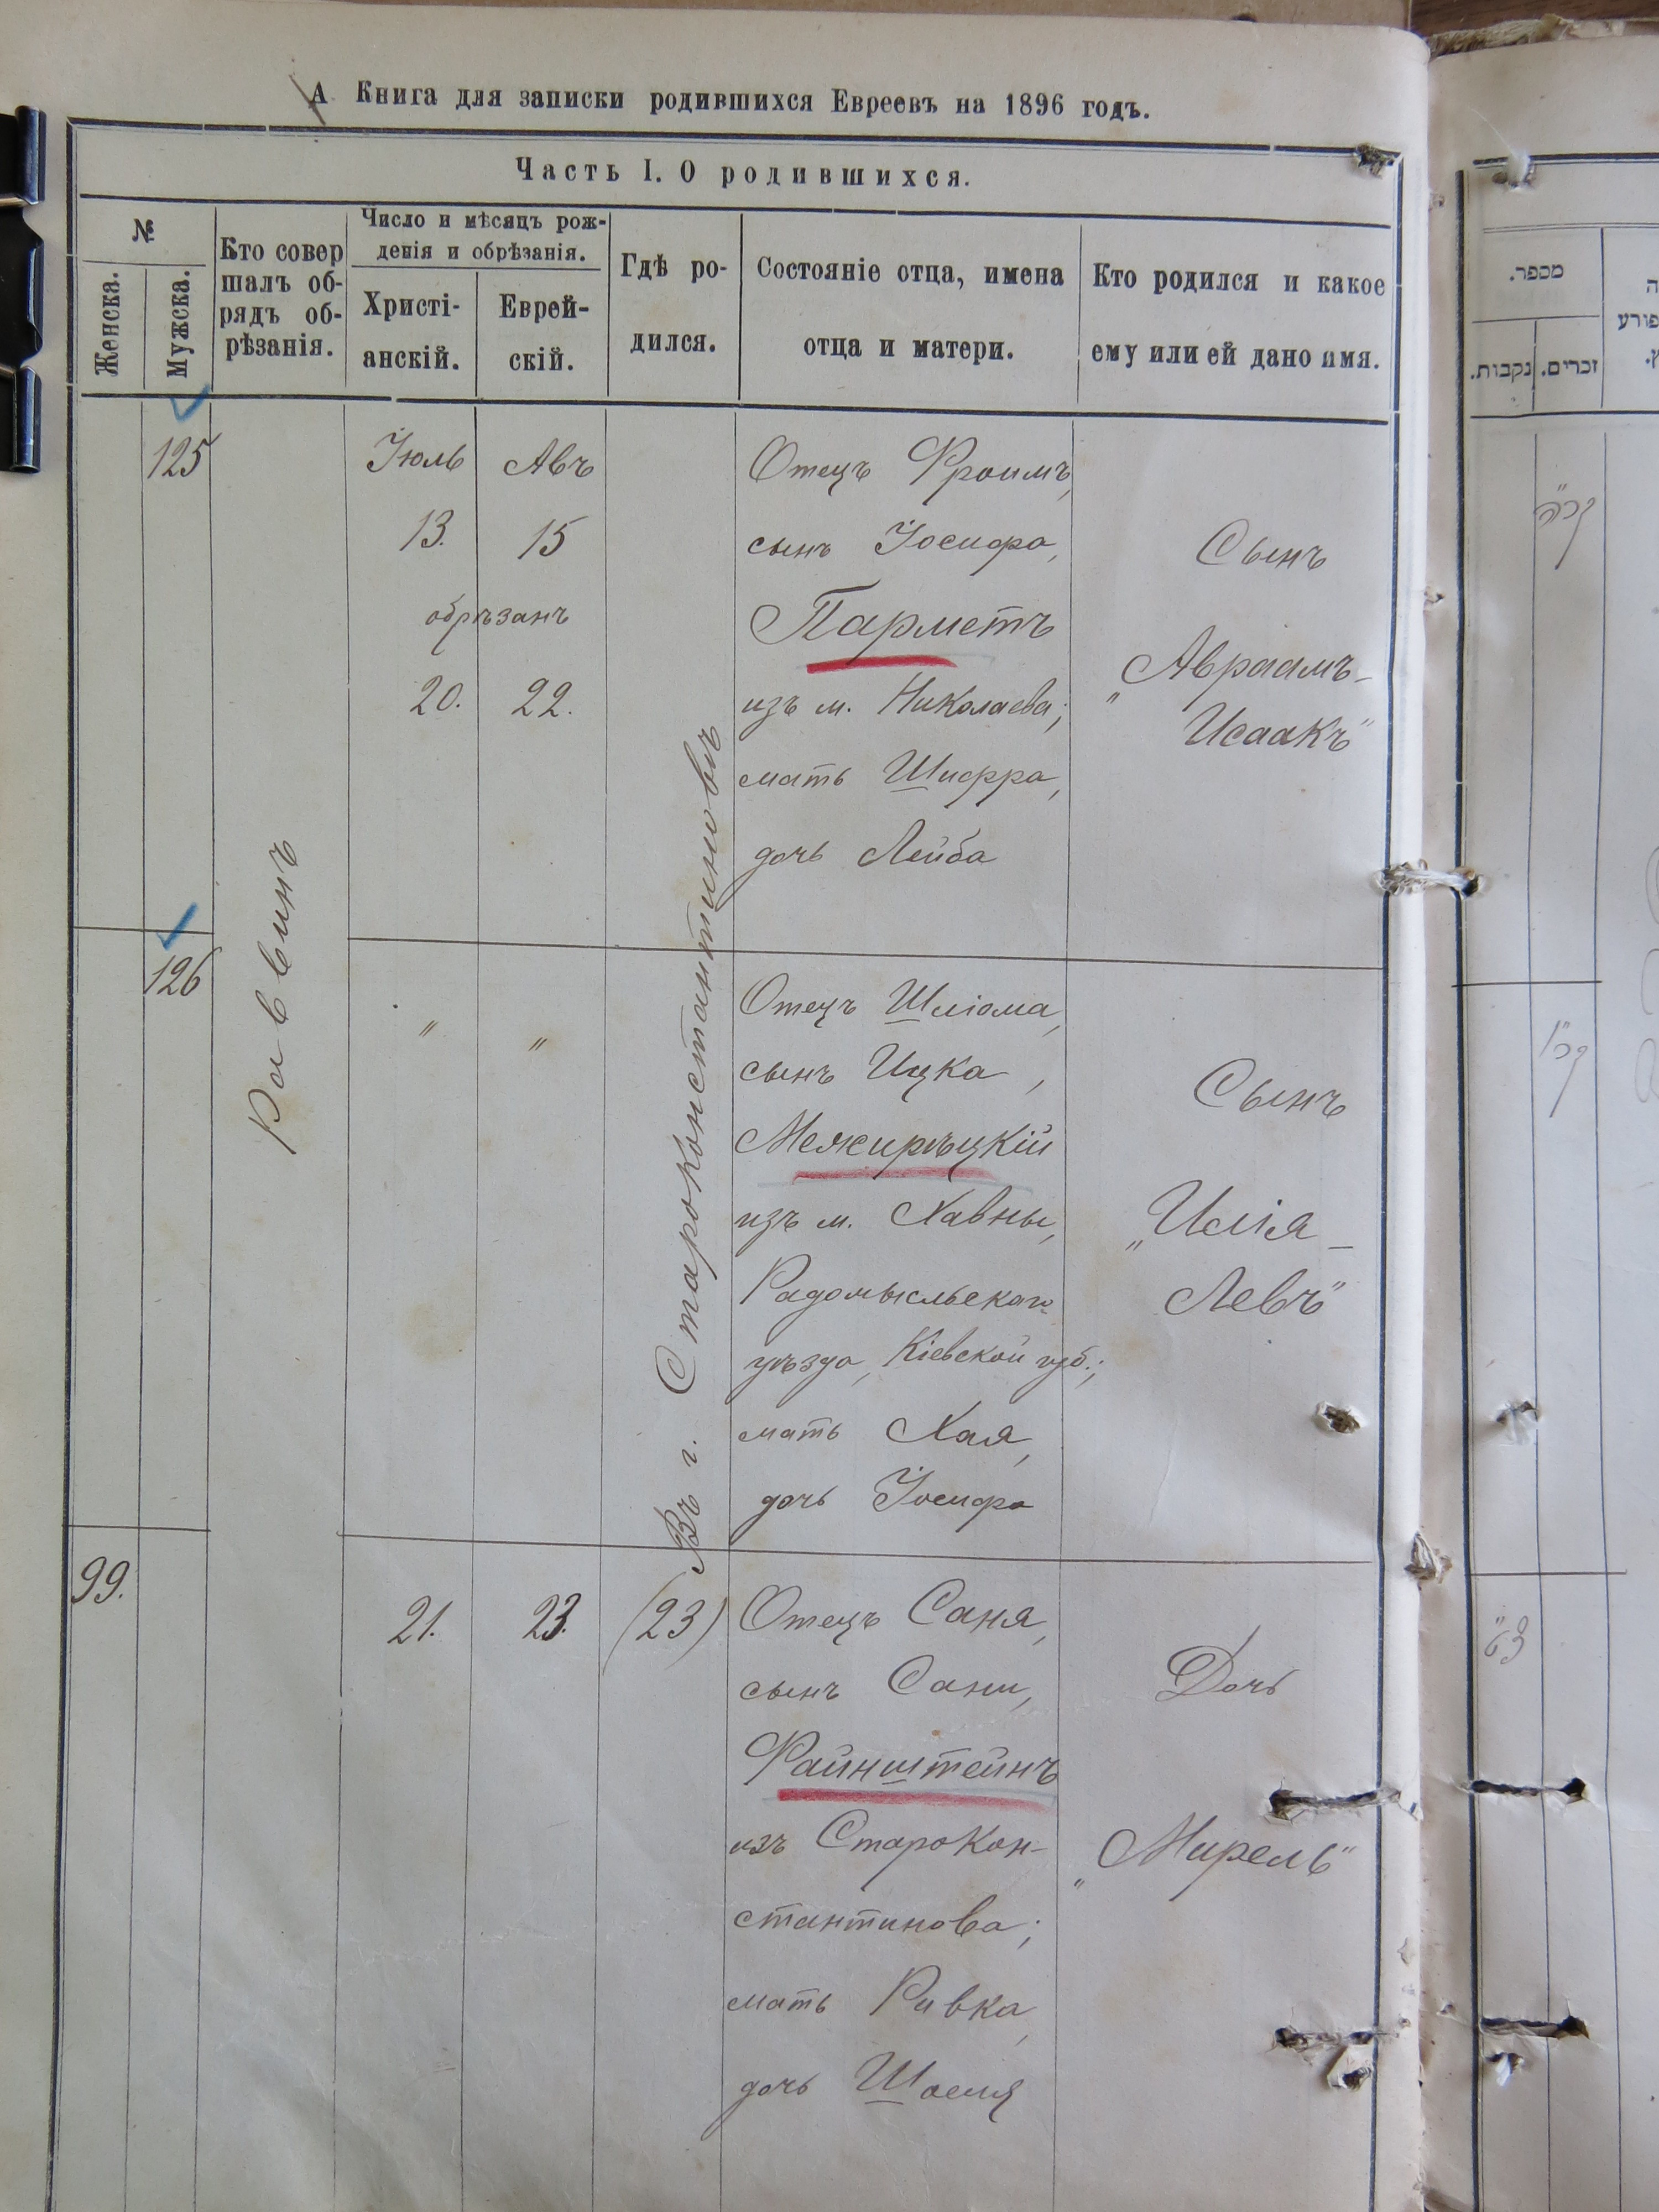 А Книга для записки родившихся Евреевъ на 1896 годъ.
Часть I. О родившихся.
№
Женска.
Мужска.
Кто совер
шалъ об-
рядъ об-
рѣзанія.
Число и мѣсяцъ рож-
денія и обрѣзанія.
Христі-
анскій.
Еврей-
скій.
Гдѣ ро-
дился.
Состояніе отца, имена
отца и матери.
Кто родился и какое
ему или ей дано имя.
מספר.
זכרים.
נקבות.
125
Іюль
Авъ
13.
15
обрѣзанъ
20.
22.
Отецъ Фроимъ,
сынъ Іосифа,
Парметъ
изъ м. Николаева;
мать Шифра,
дочь Лейба
Сынъ
„Авраамъ-
Исаакъ"
Раввинъ
Въ г. Староконстантиновѣ
126
"
"
Отецъ Шліома,
сынъ Ицка,
Межирѣцкій
изъ м. Хавны,
Радомысльскаго
уѣзда, Кіевской губ.;
мать Хая,
дочь Іосифа
Сынъ
„Илія-
Левъ"
99.
21.
23.
(23)
Отецъ Саня,
сынъ Сани,
Файнштейнъ
изъ Старокон-
стантинова;
мать Ривка,
дочь
Дочь
„Мирель"
קכ"ה
קכ"ו